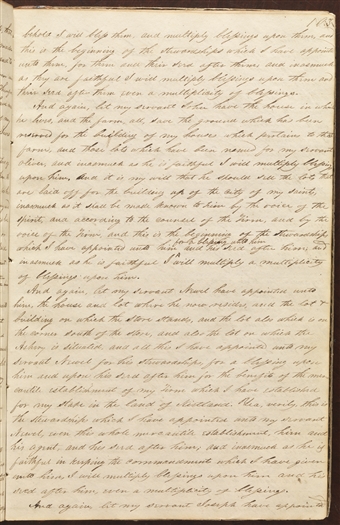 103
behold I will bless them, and multiply blessings upon them, and
this is the beginning of the stewardships which I have appointed
unto them, for them and their seed after them; and inasmuch
as they are faithful I will multiply blessings upon them and
their seed after them even a multiplicity of blessings.
And again, let my servant John have the house in which
he lives, and the farm, all, save the ground which has been
reserved for the building of my houses which pertains to that
farm, and those lots which have been named for my servant
Oliver, and inasmuch as he is faithful I will multiply blessings
upon him, And it is my will that he should sell the lots that
are laid off for the building up of the city of my saints,
inasmuch as it shall be made known to him by the voice of the
Spirit, and according to the counsel of the Firm, and by the
voice of the Firm, and this is the beginning of the stewardship
which I have appointed unto him for a blessing unto him and his seed after him, and
inasmuch as he is faithful I will multiply a multiplicity
of blessings upon him.
And again, let my servant Newel have appointed unto
him, the houses and lot where he now resides, and the lot &
building on which the store stands, and the lot also which is on
the corner south of the store, and also the lot on which the
Ashery is situated, and all this I have appointed unto my
servant Newel for his stewardship, for a blessing upon
him and upon his seed after him for the benefit of the mer
cantile establishment of my Firm which I have established
for my stake in the land of Kirtland. Yea, verily, this is
the stewardship which I have appointed unto my servant
Newel, even this whole mercantile establishment, him and
his agent, and his seed after him, and inasmuch as he is
faithful in keeping the commandments which I have given
unto him, I will multiply blessings upon him and his
seed after him, even a multiplicity of blessings.
And again let my servant Joseph have appointed